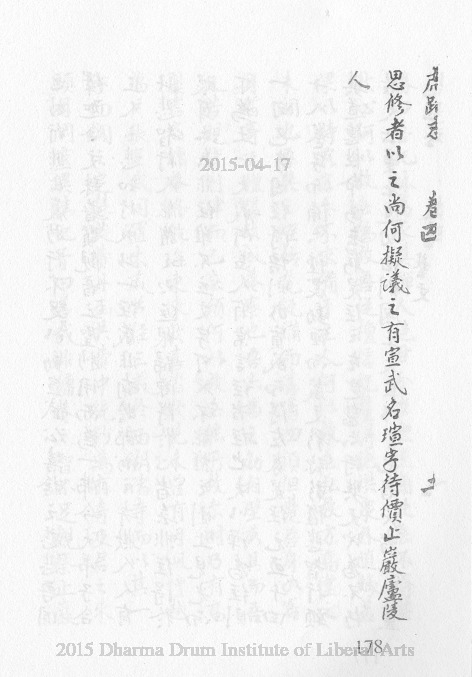 虎跑志 卷四
思修者以之尚何擬議之有宣武名瑄字待價止巖廬陵
人
2015-04-17
178
2015 Dharma Drum Institute of Liberal Arts